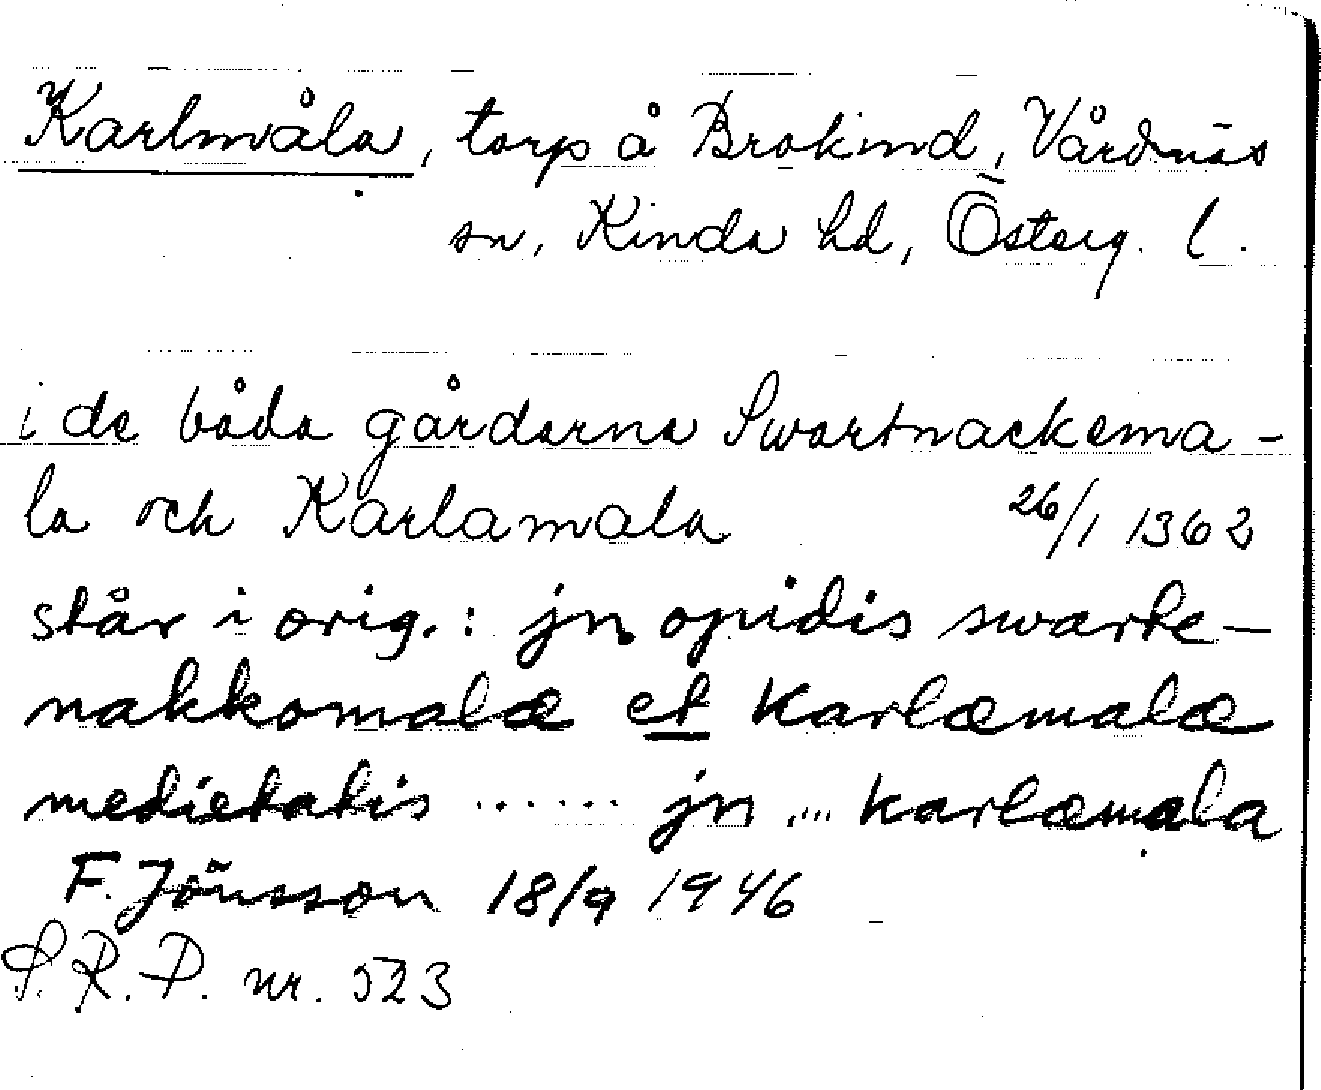 Karlmåla, torp å Brokind, Vårdnäs
sn, Kinda hd, Österg. l.
i de båda gårdarna Swartnackema-
la och Karlamala 26/1 1362
står i orig.: jn opidis swarte-
nakkomalæ et Karlæmalæ
medietatis ...... jn .... Karlæmala
F. Jönsson 18/9 1946
S.R.P. nr. 523